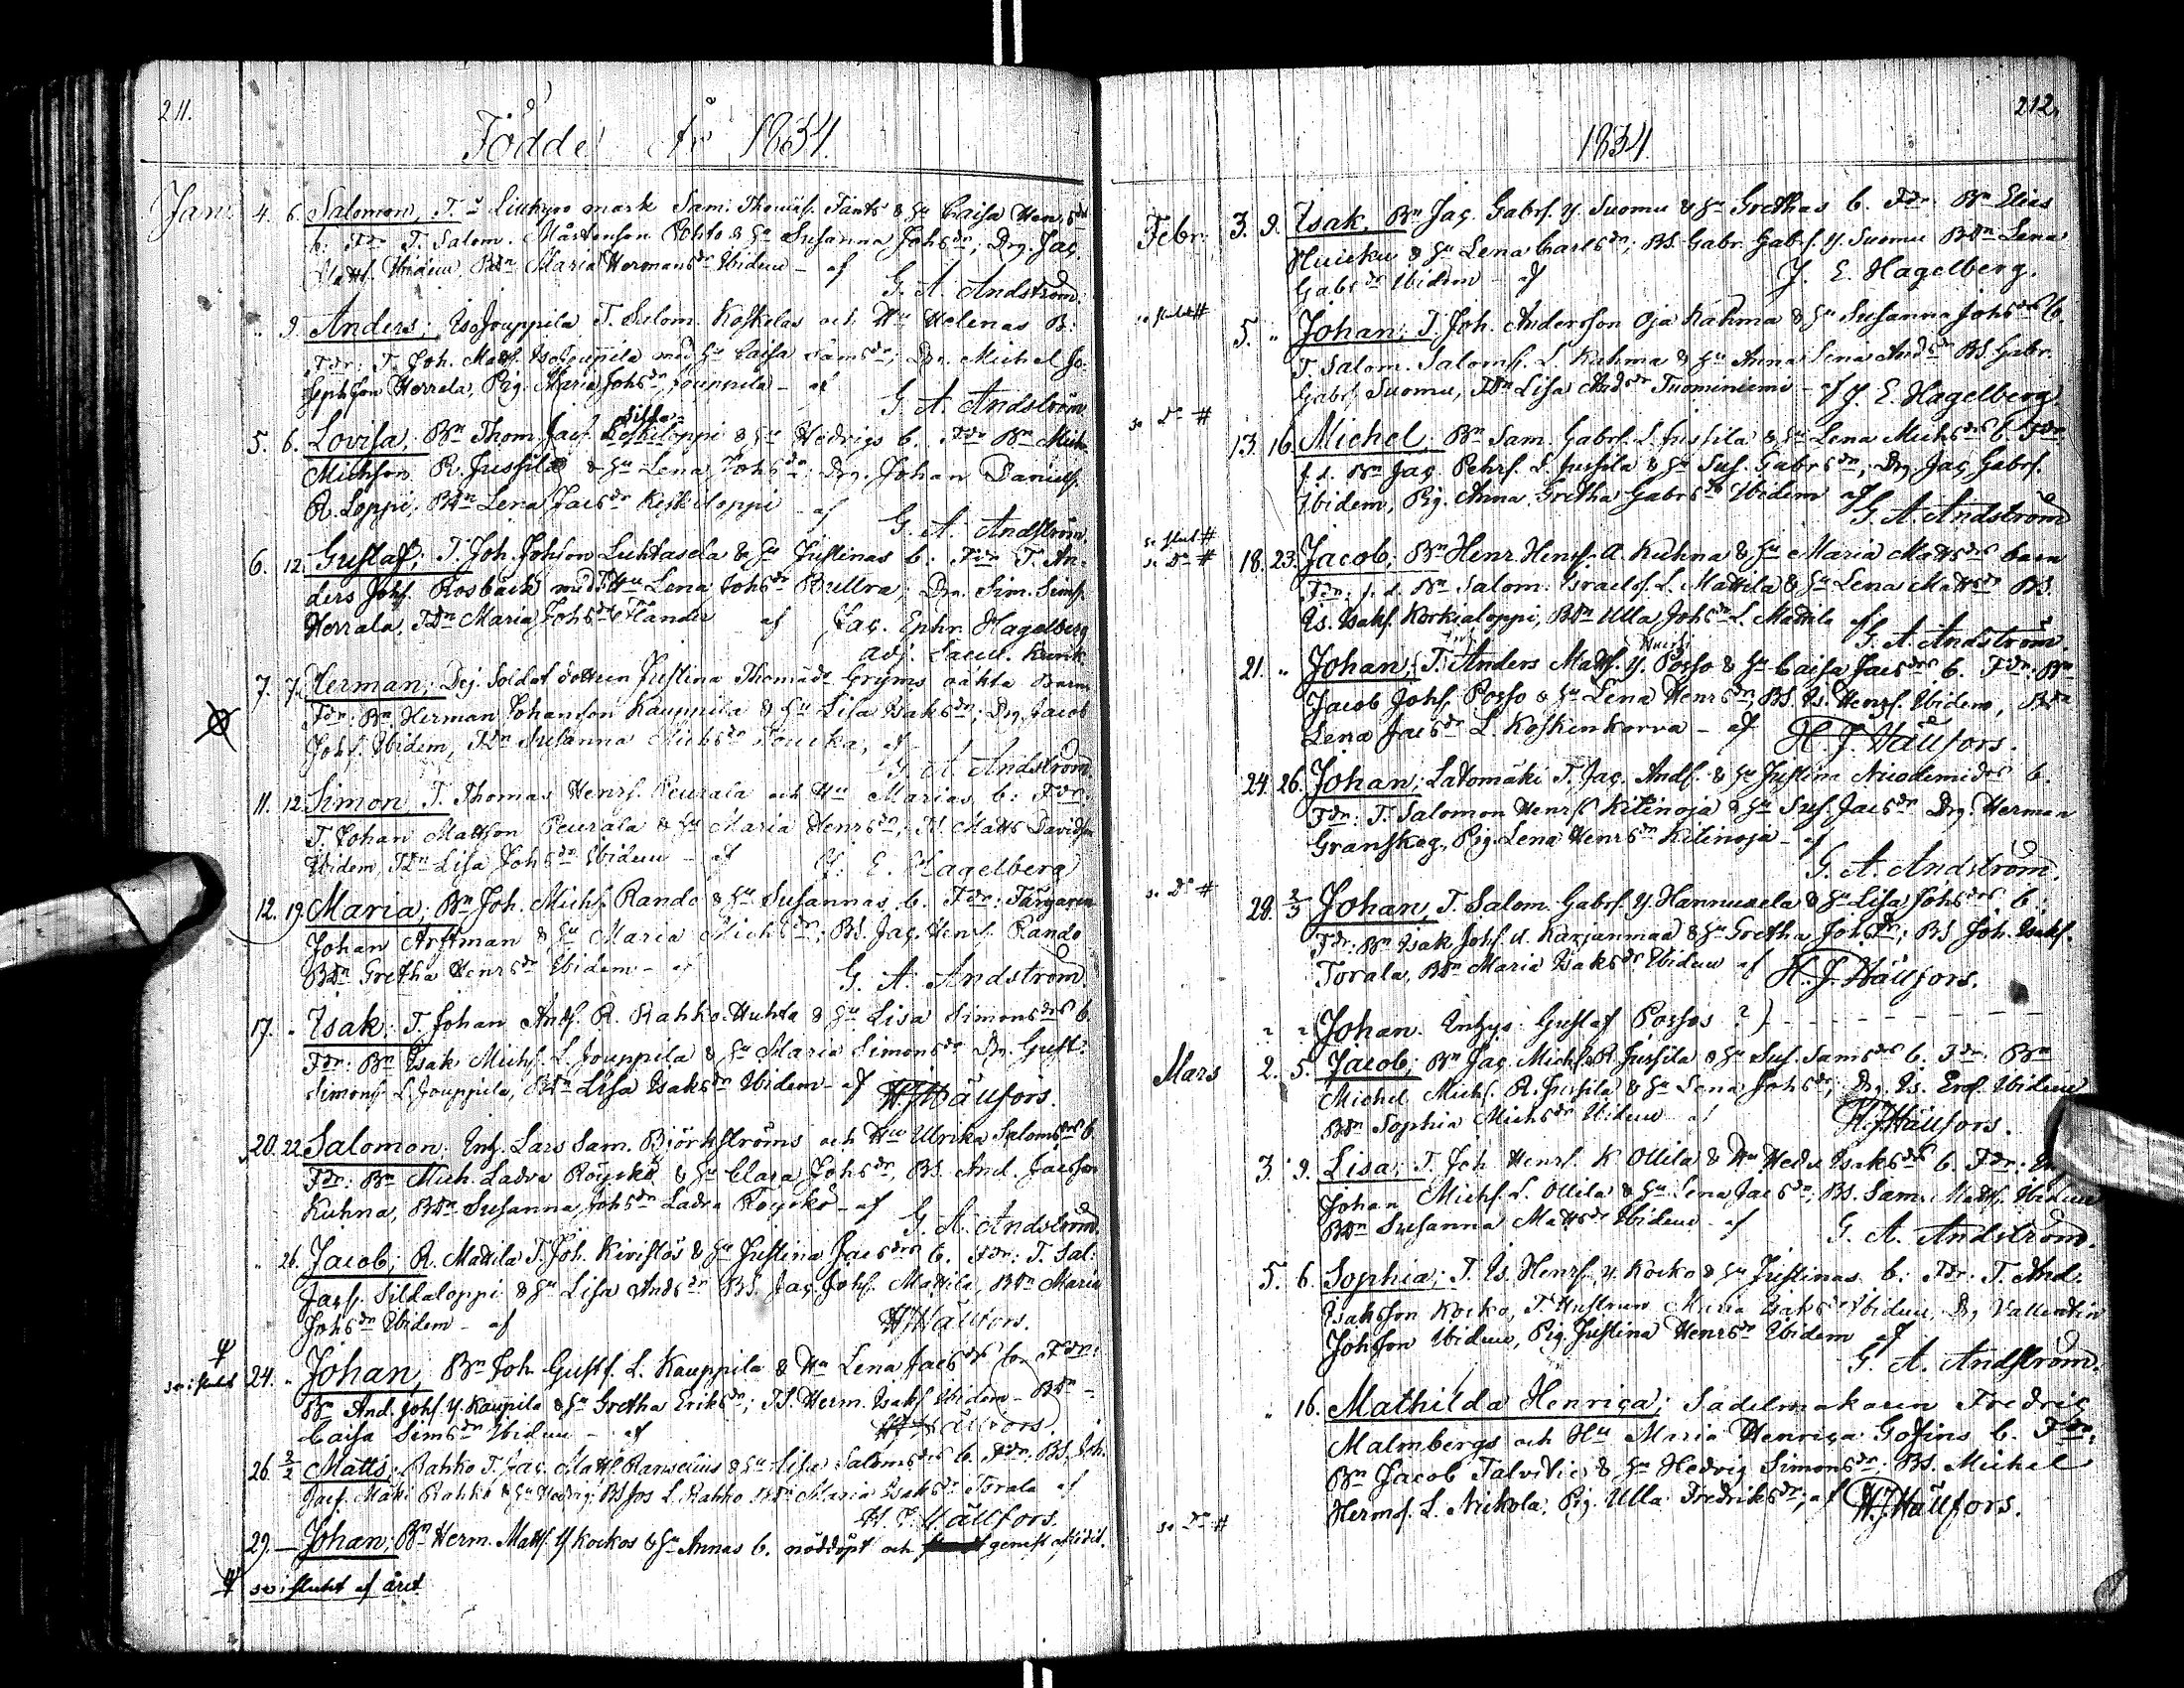 211.
Födde År 1834.
Jan. 4. 6. Salomon, T. å Liuhyoo mark Sam. Thomas. Tänts & Hu Caisa Hen:sdrs
b: Fdr T. Salom. Mårtenson Pohto & Hu Susanna Johsdr; Drg. Jac.
Matts. Ibidem, Bdn Maria Hermansdr Ibidem - af
G. A. Andström.
" 9. Anders; IsoJouppila T. Salom. Koskelas och Hu Helenas B:
Fdr: T. Joh. Matts. IsoJouppila med Hu Caisa Samsdr; Drg. Michel Jo-
sephson Herrala, Pig. Maria Johsdr Jouppila - af
G. A. Andström
Silda
5. 6. Lovisa; Bn Thom. Jacs. Keskiloppi & Hu Hedvigs b. Fdr Bn Mich.
Michson R. Jussila & Hu Lena Johsdr; Drg. Johan Daniels.
R. Loppi; Bdn Lena Jacsdr Keskiloppi - af
G. A. Andström
6. 12. Gustaf; T. Joh. Johson Luhtasela & Hu Justinas b: Fdr T. An-
ders Johs. Rosbäck med Hu Lena Johsdr Bullra; Drg. Sim. Sims.
Herrala, Tdn Maria Johsdr Flander af Jac. Ephr. Hagelberg
adj. Sacell. Kurik.
7. 7. Herman; Dej. Soldat dottren Justina Thomædr Gryms oäkta Barn
Fdr: Bn Herman Johanson Kauppila & Hu Lisa Isaksdr; Drg. Jacob
Johs. Ibidem, Tdn Susanna Michsdr Touska; af
G. A. Andström.
11. 12. Simon, T. Thomas Henrs. Peurala och Hu Marias b: Fdr:
T. Johan Mattson Peurala & Hu Maria Henrsdr; TS. Matts Davidson
Ibidem, Tdn Lisa Johsdr Ibidem - af J. E. Hagelberg
12. 19. Maria; Bn Joh. Michs. Rando & Hu Susannas b. Fdr: Färgaren
Johan Arftman & Hu Maria Michsdr; BS. Jac. Henrs. Rando
Bdn Gretha Henrsdr Ibidem - af
G. A. Andström.
17. " Isak; T. Johan Ants. R. Rahko-Huhta & Hu Lisa Simonsdrs b.
Fdr: Bn Isak Michs. L. Jouppila & Hu Maria Simonsdr Drg. Gust.
Simons. L. Jouppila, Bdn Lisa Isaksdr Ibidem - af H. J. Hällfors.
20. 22. Salomon; Inh. Lars Sam. Björkströms och Hu Ulrika Salomsdrs b.
Fdr: Bn Mich. Ladva Röyskö & Hu Clara Johsdr; BS. And. Jacobson
Kuhna, Bdn Susanna Johsdr Ladva Röyskö - af
G. A. Andström.
" 26. Jacob; R. Mattila T. Joh. Kivistös & Hu Justina Jacsdrs b. Fdr: T. Sal:
Jacs. Sildaloppi & Hu Lisa Andsdr BS. Jac. Johs. Mattila, Bdn Maria
Johsdr Ibidem - af H. J. Hällfors.
se i slutet 24. " Johan; Bn Joh. Gusts. L. Kauppila & Hu Lena Jacsdrs b. Fdr:
Bn And. Johs. Y. Kaupila & Hu Gretha Eriksdr; TS. Herm. Isaks. Ibidem - Bdn -
Caisa Simsdr Ibidem - af H. J. Hällfors.
26. 2/2 Matts; Rahko T. Jac. Matts. Ranselius & Hu Lisa Salomsdrs b. Fdr: BS. Joh.
Jacs. Mäki Rahko & Hu Hedvig; BS Jos L. Rahko Bdn Maria Isaksdr Torala af
H. J. Hällfors.
29. - Johan; Bn Herm. Matts. Y. Kockos & Hu Annas b. nöddöpt och genast afledit.
se i slutet af året
212.
1834.
Febr. 3. 9. Isak. Bn Jac. Gabrs. Y. Suomu & Hu Grethas b. Fdr: Bn Elias
Huicku & Hu Lena Carlsdr; BS. Gabr. Gabrs. Y. Suomu Bdn Lena
Gabrsdr Ibidem - af J. E. Hagelberg.
se slutet #
5. " Johan; T. Joh. Anderson Oja Kahma & Hu Susanna Johsdrs b.
T. Salom. Saloms. L. Kahma & Hu Anna Lena Andsdr BS. Gabr.
Gabrs. Suomu, Tdn Lisa Andsdr Tuominiemi - af J. E. Hagelberg
se Do #
13. 16. Michel; Bn Sam. Gabrs. L. Jussila & Hu Lena Michsdrs b. Fdr:
f. d. Bn Jac. Pehrs. L. Jussila & Hu Sus. Gabrsdr; Drg. Jac. Gabrs.
Ibidem, Pig. Anna Gretha Gabrsdr Ibidem af
G. A. Andström
se slut #
se Do # 18. 23. Jacob; Bn Henr. Henrs. A. Kuhna & Hu Maria Mattsdrs barn
Fdr: f. d. Bn Salom. Israels. L. Mattila & Hu Lena Mattsdr BS.
Is. Isaks. Korkialoppi, Bdn Ulla Johsdr L. Mattila af
G. A. Andström.
21. " Johan; T. Anders Matts. Y. Posso & Hu Caisa Jacsdrs b. Fdr: Bn
Jacob Johs. Posso & Hu Lena Henrsdr; BS. Is. Henrs. Ibidem, Bdn
Lena Jacsdr L. Koskenkorva - af H. J. Hällfors.
24. 26. Johan; Latomäki T. Jac. Ands. & Hu Justina Nicodemidrs b.
Fdr: T. Salomon Henrs. Kitinoja & Hu Sus. Jacsdr Drg. Herman
Granskog, Pig. Lena Henrsdr Kitinoja - af
G. A. Andström.
se Do #
28. 2/3 Johan; T. Salom. Gabrs. Y. Hannuxela & Hu Lisa Johsdrs b:
Fdr: Bn Isak Johs. A. Karjanmaa & Hu Gretha Johsdr; BS Joh. Isaks.
Torala, Bdn Maria Isaksdr Ibidem af H. J. Hällfors.
? ? Johan. Inhys. Gustaf Possos ?) - - - - - -
Mars 2. 5. Jacob; Bn Jac. Michs. R. Jussila & Hu Sus. Samsdrs b. Fdr: Bn
Michel Michs. R. Jussila & Hu Lena Johsdr; Drg. Is. Ers. Ibidem
Bdn Sophia Michsdr Ibidem af H. J. Hällfors.
3. 9. Lisa; T. Joh. Henrs. K. Ollila & Hu Hedv. Isaksdrs b. Fdr:
Johan Michs. L. Ollila & Hu Lena Jacsdr; BS. Sam. Matts. Ibidem
Bdn Susanna Mattsdr Ibidem - af
G. A. Andström.
5. 6. Sophia; T. Is. Henrs. Y. Kocko & Hu Justinas b: Fdr: T. And.
Isaksson Kocko, T. Hustrun Maria Isaksdr Ibidem, Drg Vallentin
Johsson Ibidem, Pig. Justina Henrsdr Ibidem af
G. A. Andström.
" 16. Mathilda Henrica; Sadelmakaren Fredric
Malmbergs och Hu Maria Henrica Gosins b. Fdr:
Bn Jacob Talvitie & Hu Hedvig Simonsdr; BS. Michel
Herms. L. Nickola, Pig. Ulla Fredriksdr; af H. J. Hällfors.
se Do #